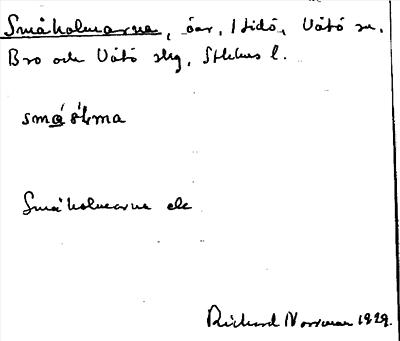 Småholmarna, öar, Vätö sn,
Bro och Vätö skg, Sthlms l.
småhɷ́lma
Småholmarna ek
Rickard Norrman 1929.